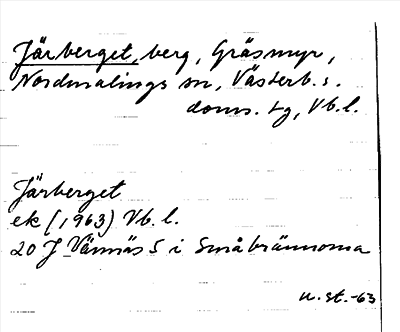 Järberget, berg, Gräsmyr,
Nordmalings sn, Västerb. s.
doms. tg, Vb. l.
Järberget
ek (1963) Vb. l.
20 J Vännäs 5 i Småbrännorna
u. st. -63